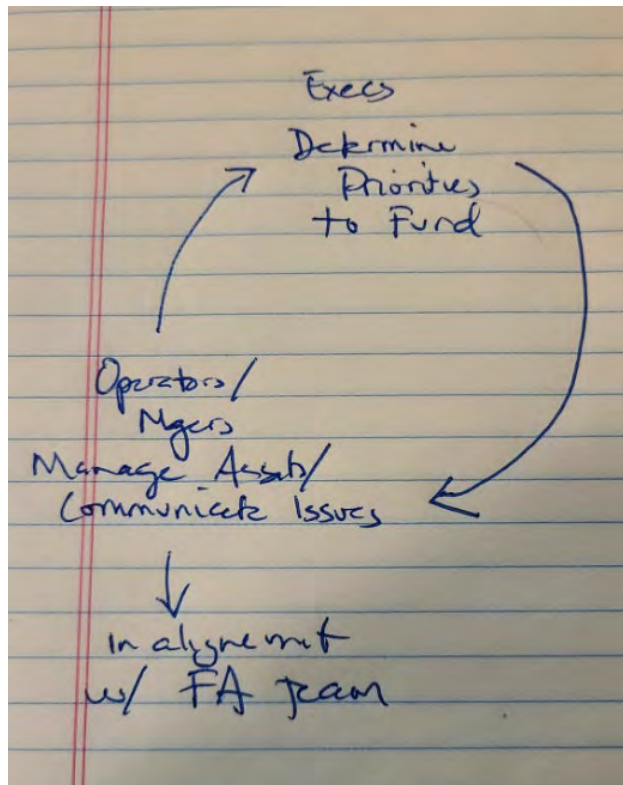 Execs
Determine
Priorities
to Fund
Operators/
Mgers
Manage Assets/
Communicate Issues
In alignemnt
w/ FA team